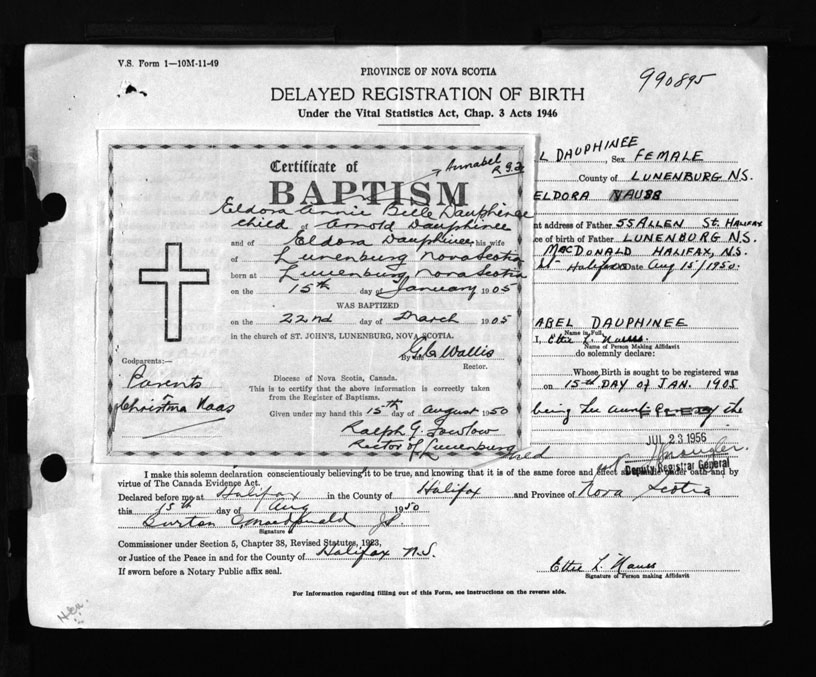 V.S. Form 1—10M-11-49
PROVINCE OF NOVA SCOTIA
990895
DELAYED REGISTRATION OF BIRTH
Under the Vital Statistics Act, Chap. 3 Acts 1946
L DAUPHINEE, Sex FEMALE
County of LUNENBURG N.S.
ELDORA NAUSS
nt address of Father 55 ALLEN St. HALIFAX
ce of birth of Father LUNENBURG N.S.
MACDONALD HALIFAX, N.S.
Halifax Date Aug 15/1950.
ABEL DAUPHINEE
Name in Full
I, Ettie L. Nauss
Name of Person Making Affidavit
do solemnly declare:
Whose Birth is sought to be registered was
on 15th DAY of JAN. 1905
being the aunt of the
JUL 23 1956
Deputy Registrar General
Certificate of
Annabel
BAPTISM
Eldora Annie Belle Dauphinee
child of Arnold Dauphinee
and of Eldora Dauphinee, his wife
of Lunenburg Nova Scotia
born at Lunenburg, Nova Scotia
on the 15th day of January 1905
WAS BAPTIZED
on the 22nd day of March 1905
in the church of ST. JOHN'S, LUNENBURG, NOVA SCOTIA.
By the G C Wallis
Rector.
Godparents:—
Parents
Christina Naas
Diocese of Nova Scotia, Canada.
This is to certify that the above information is correctly taken
from the Register of Baptisms.
Given under my hand this 15th day of August 1950
Ralph G. Fowlow
Rector of Lunenburg
I make this solemn declaration conscientiously believing it to be true, and knowing that it is of the same force and effect as if made under oath and by
virtue of The Canada Evidence Act.
Declared before me at Halifax in the County of Halifax and Province of Nova Scotia
this 15th day of Aug 1950
Signature
Commissioner under Section 5, Chapter 38, Revised Statutes, 1923,
or Justice of the Peace in and for the County of Halifax N.S.
If sworn before a Notary Public affix seal.
Ettie L. Nauss
Signature of Person making Affidavit
For Information regarding filling out of this Form, see instructions on the reverse side.